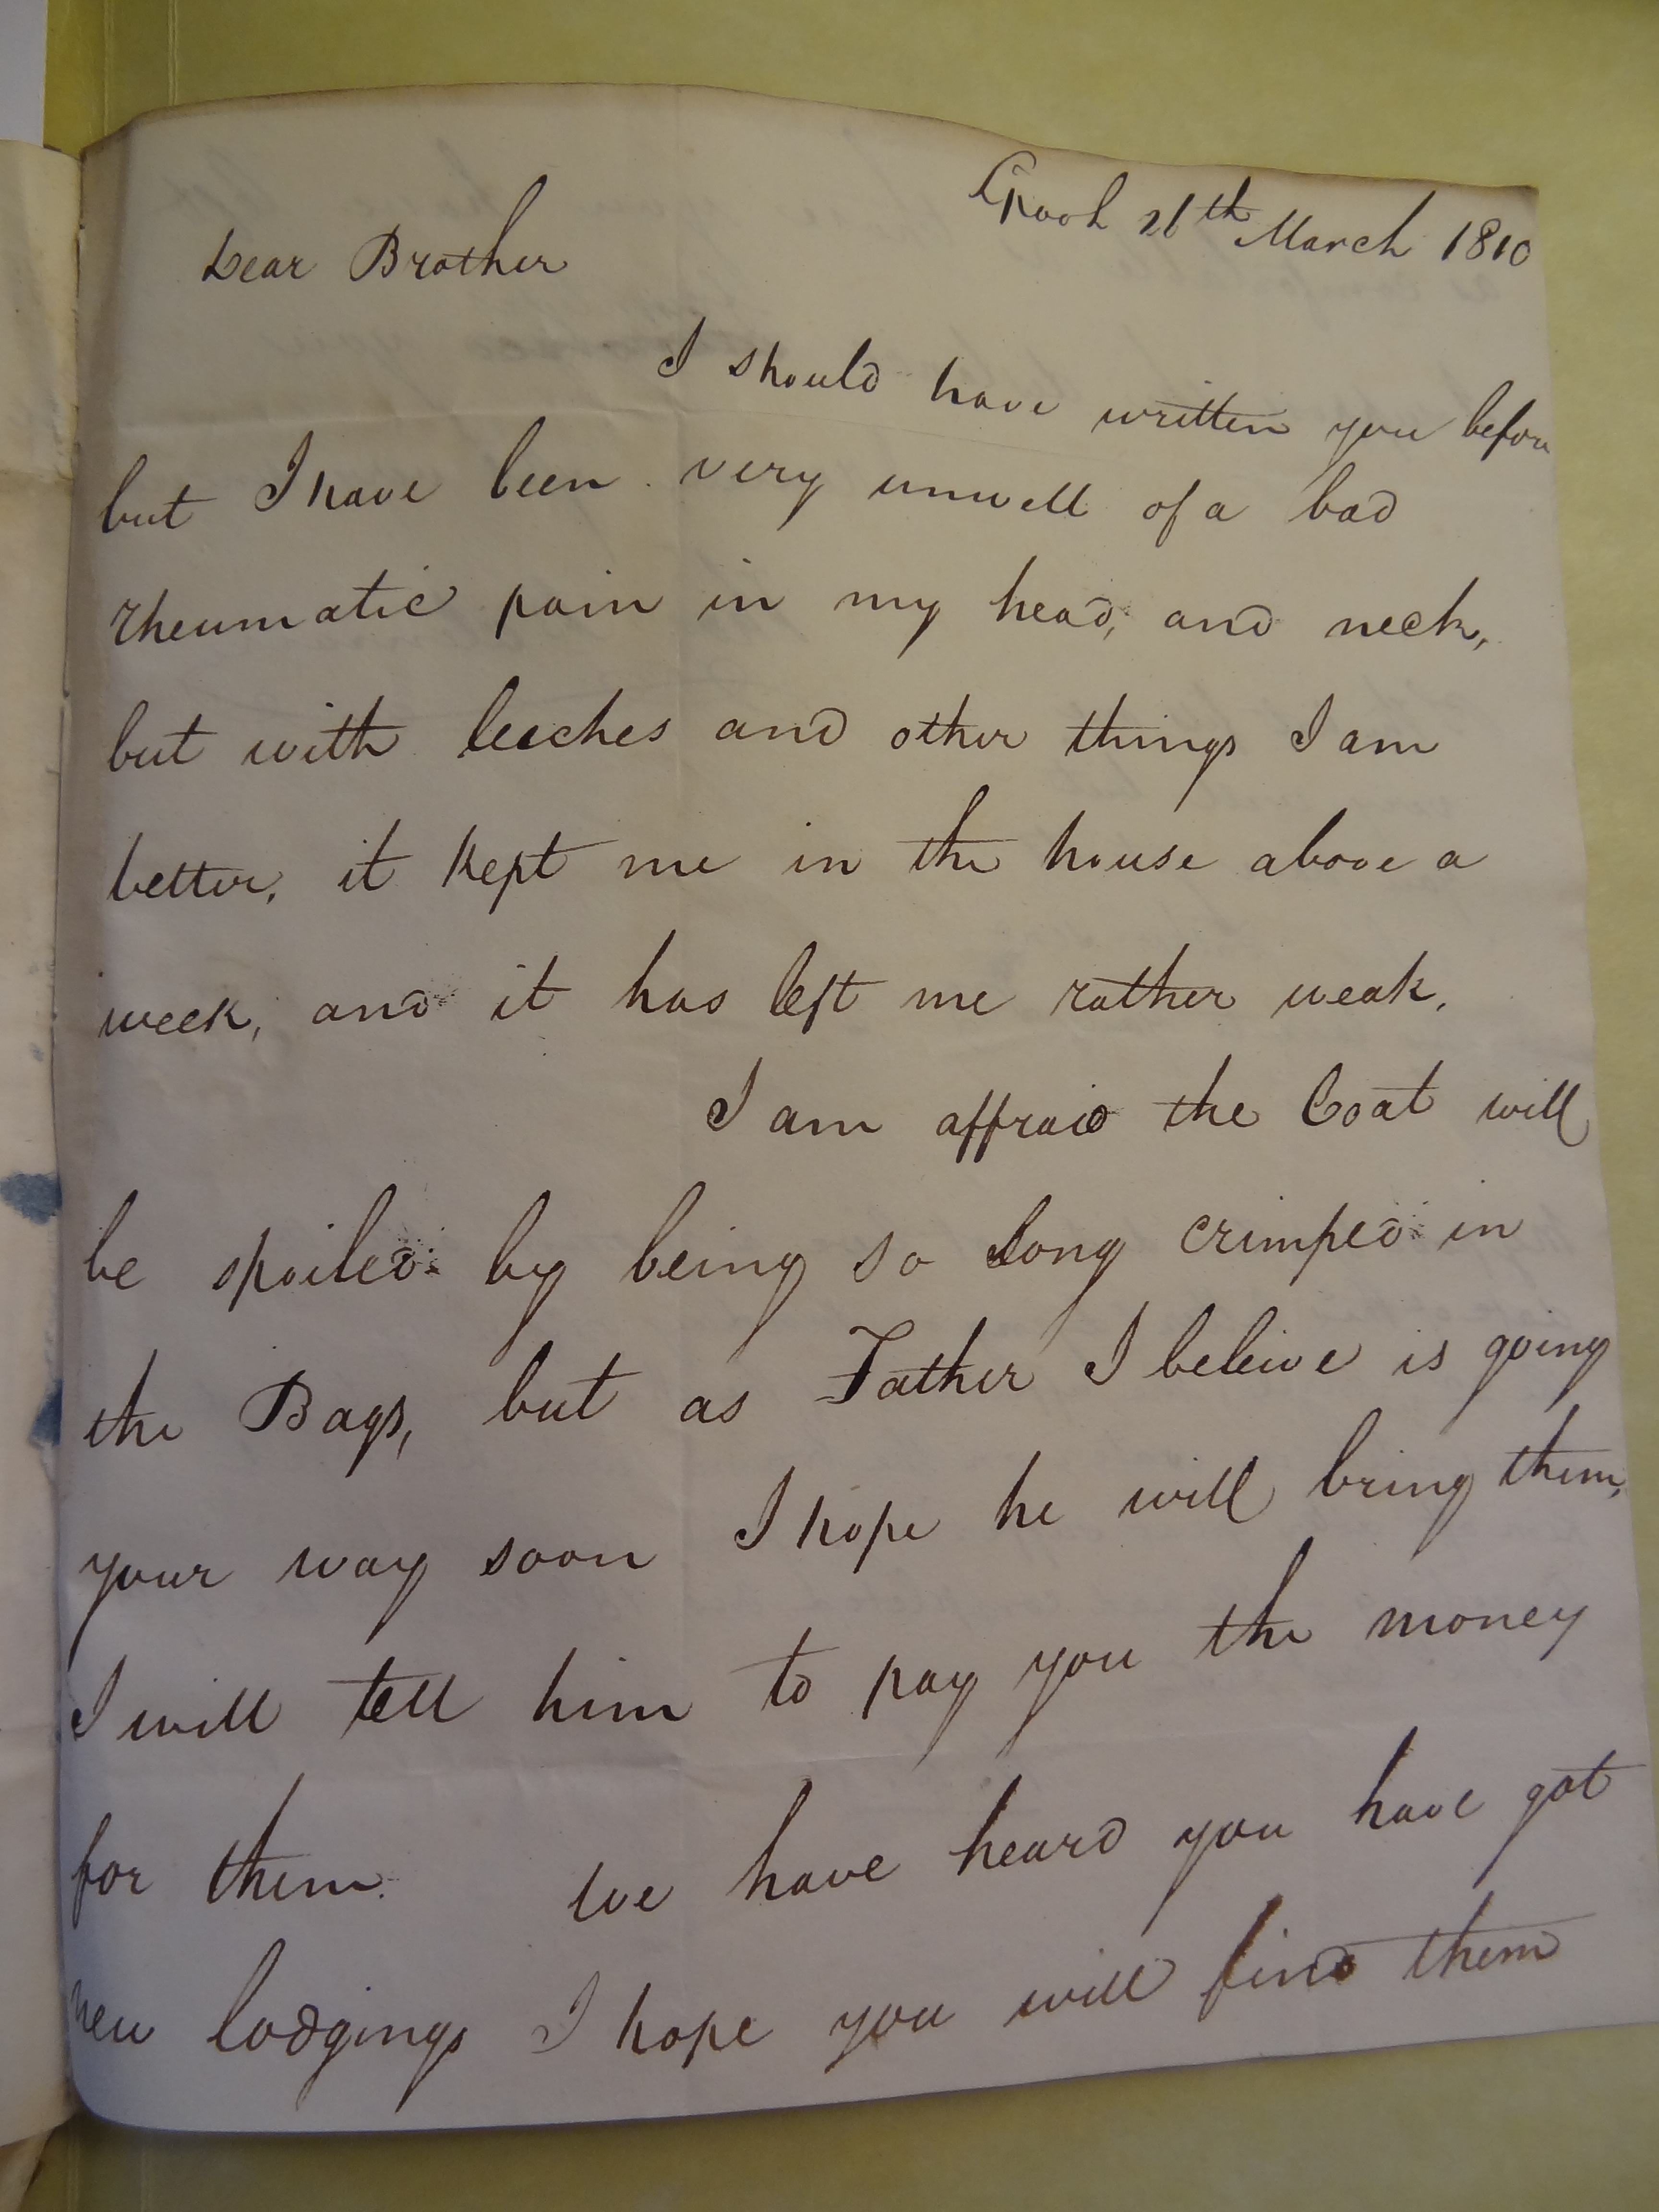 26th March 1810
Dear Brother
I should have written you before
but I have been very unwell of a bad
rheumatic pain in my head, and neck,
but with leeches and other things I am
better, it kept me in the house above a
week, and it has left me rather weak.
I am affraid the Coat will
be spoiled by being so long crimped in
the Bags, but as Father I beleive is going
your way soon I hope he will bring them,
I will tell him to pay you the money
for them. We have heard you have got
new lodgings I hope you will find them